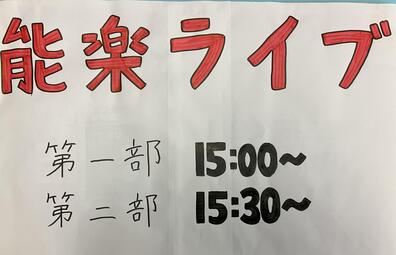 能楽ライブ
第一部 15:00〜
第二部 15:30〜